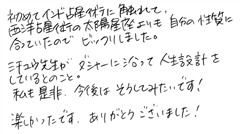 初めてインド占星術に触れて、
西洋占星術の太陽星座よりも 自分の性質に
合っていたので ビックリしました。
先生が ダシャーに沿って 人生設計を
しているとのこと。
私も是非、今後は そうしてみたいです!
楽しかったです、ありがとうございました!